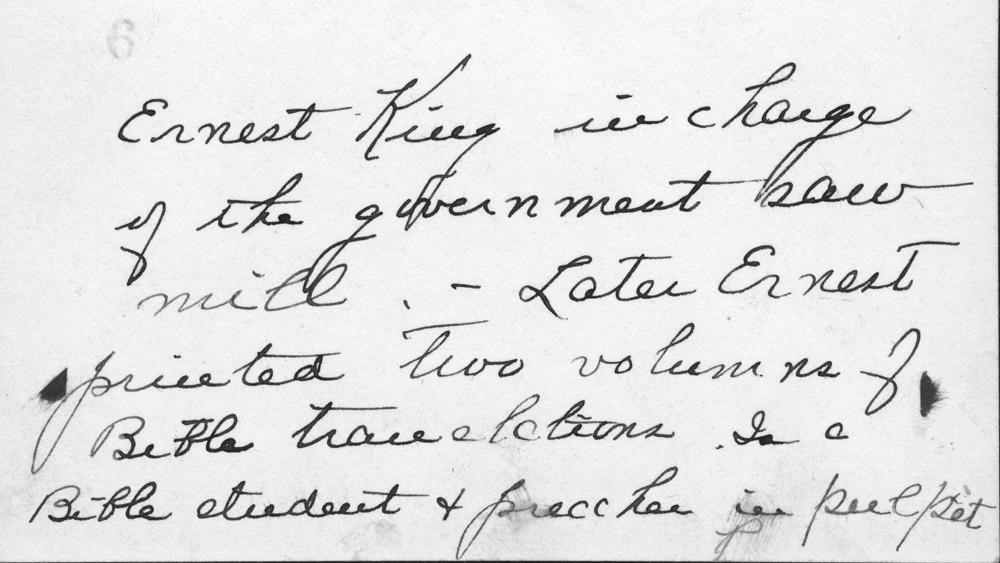 6
Ernest King in charge
of the government saw
mill . - Later Ernest
printed two volumns of
Bible translations. Is a
Bible student & preacher in pulpit